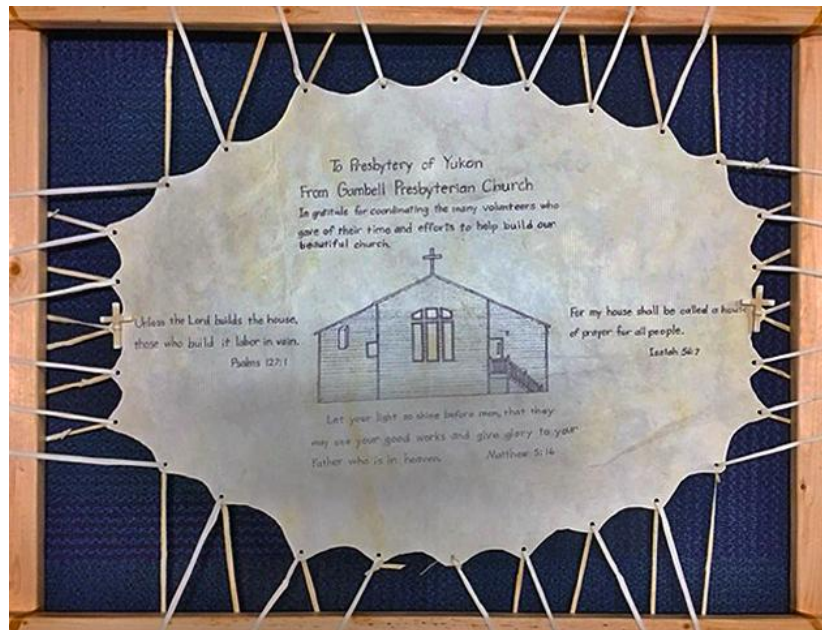 To Presbytery of Yukon
From Gambell Presbyterian Church
In gratitude for coordinating the many volunteers who
gave of their time and efforts to help build our
beautiful church.
Unless the Lord builds the house,
those who build it labor in vain.
Psalms 127:1
For my house shall be called a house
of prayer for all people.
Isaiah 56:7
Let your light so shine before men, that they
may see your good works and give glory to your
Father who is in heaven. Matthew 5:16